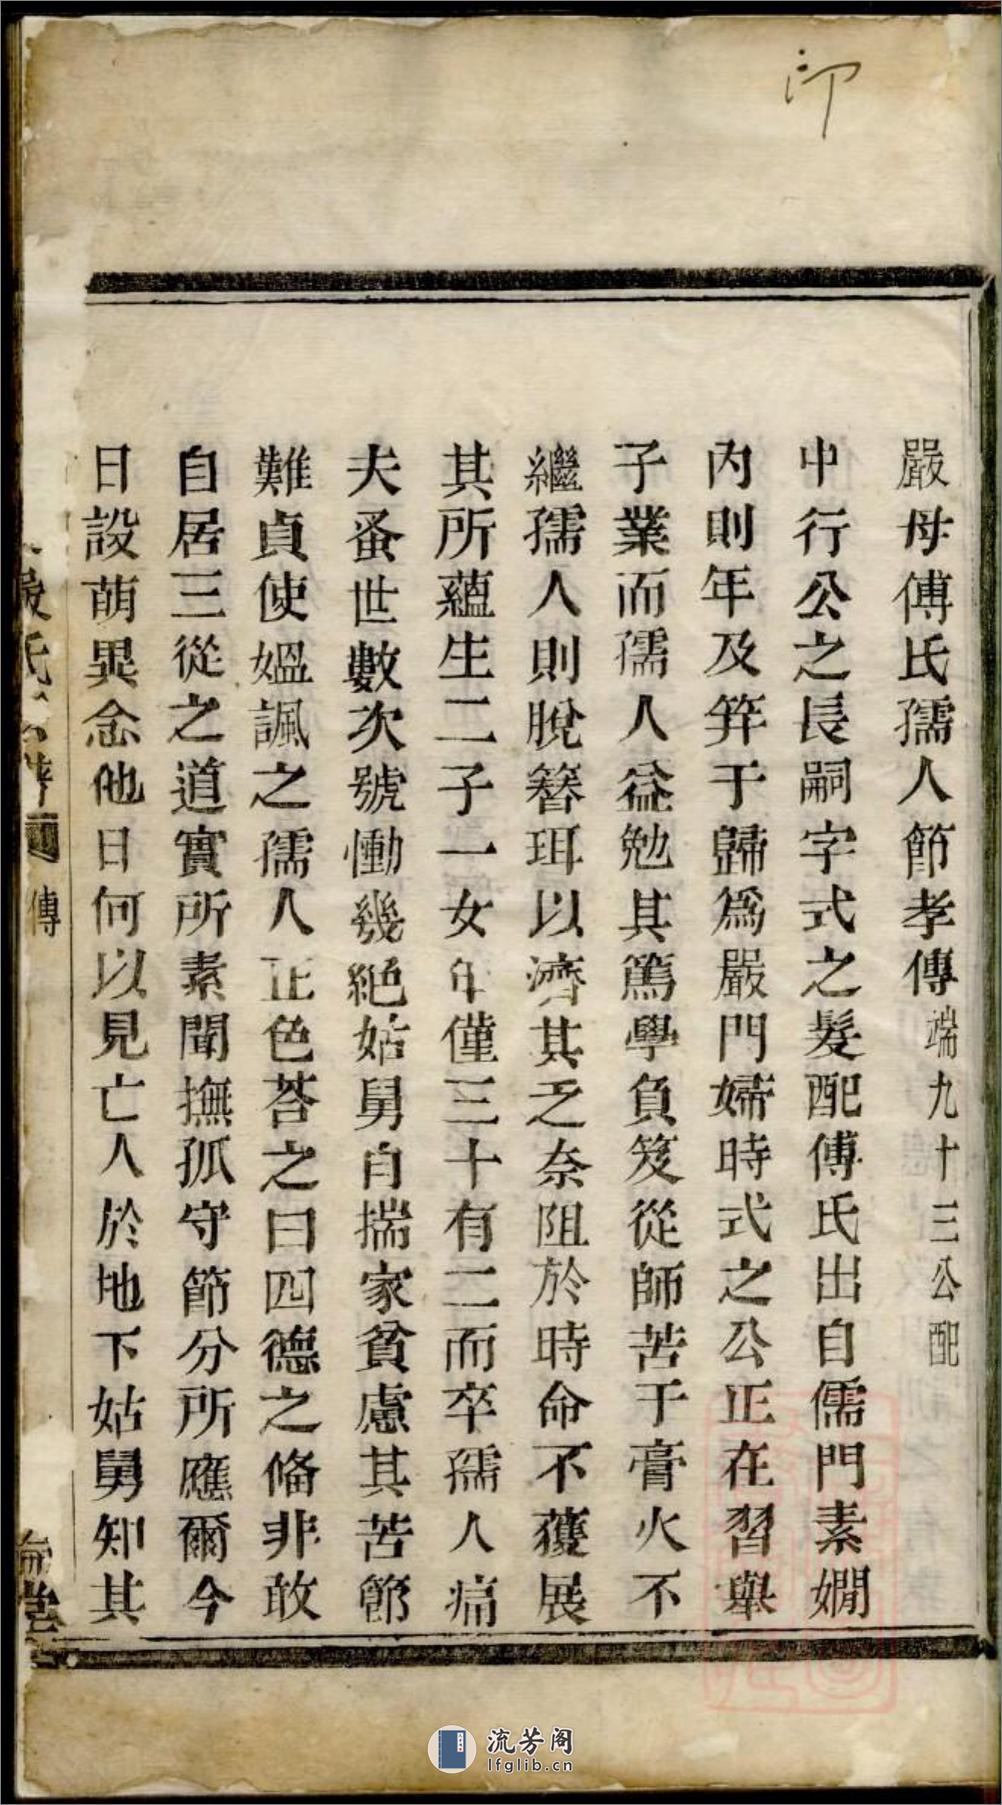 印
嚴母傅氏孺人節孝傳端九十三公配
中行公之長嗣字式之髮配傅氏出自儒門素嫺
內則年及笄于歸爲嚴門婦時式之公正在習舉
子業而孺人益勉其篤學負笈從師苦于膏火不
繼孺人則脫簪珥以濟其乏奈阻於時命不獲展
其所蘊生二子一女年僅三十有二而卒孺人痛
夫蚤世數次號慟幾絕姑舅自揣家貧慮其苦節
難貞使媼諷之孺人正色荅之曰四德之脩非敢
自居三從之道實所素聞撫孤守節分所應爾今
日設萌異念他日何以見亡人於地下姑舅知其
嚴氏
傳
堂
流芳阁
lfglib.cn